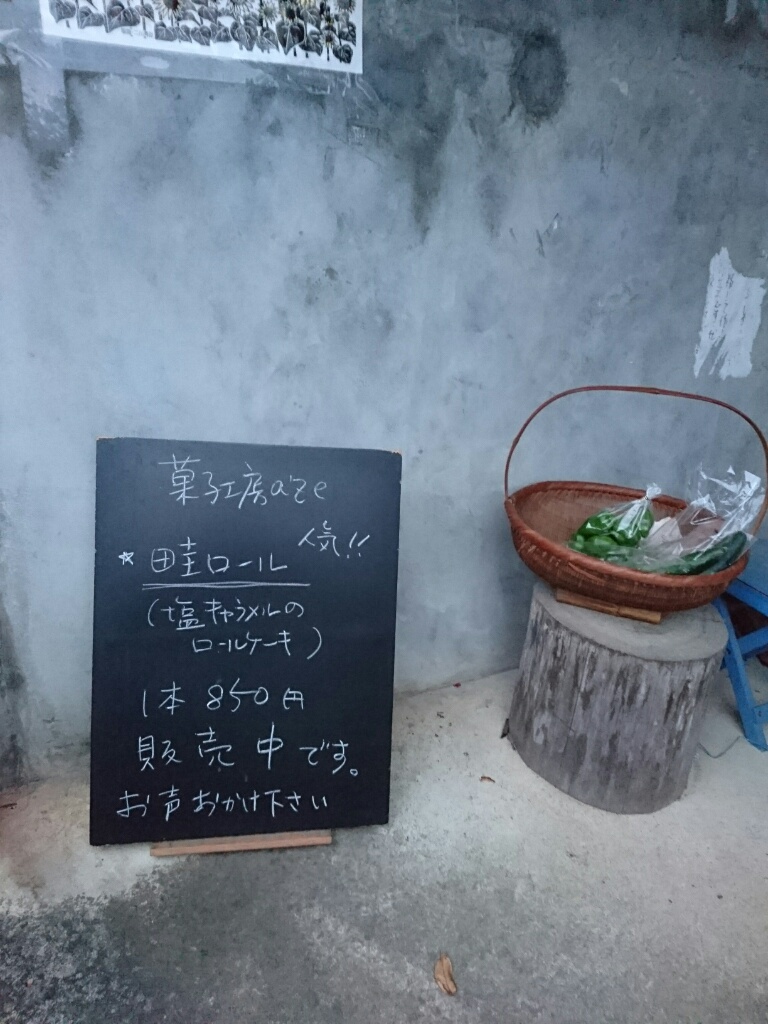 菓子工房a'ze
人気!!
☆ 畦ロール
(塩キャラメルの
ロールケーキ)
1本 850円
販売中です。
お声おかけ下さい